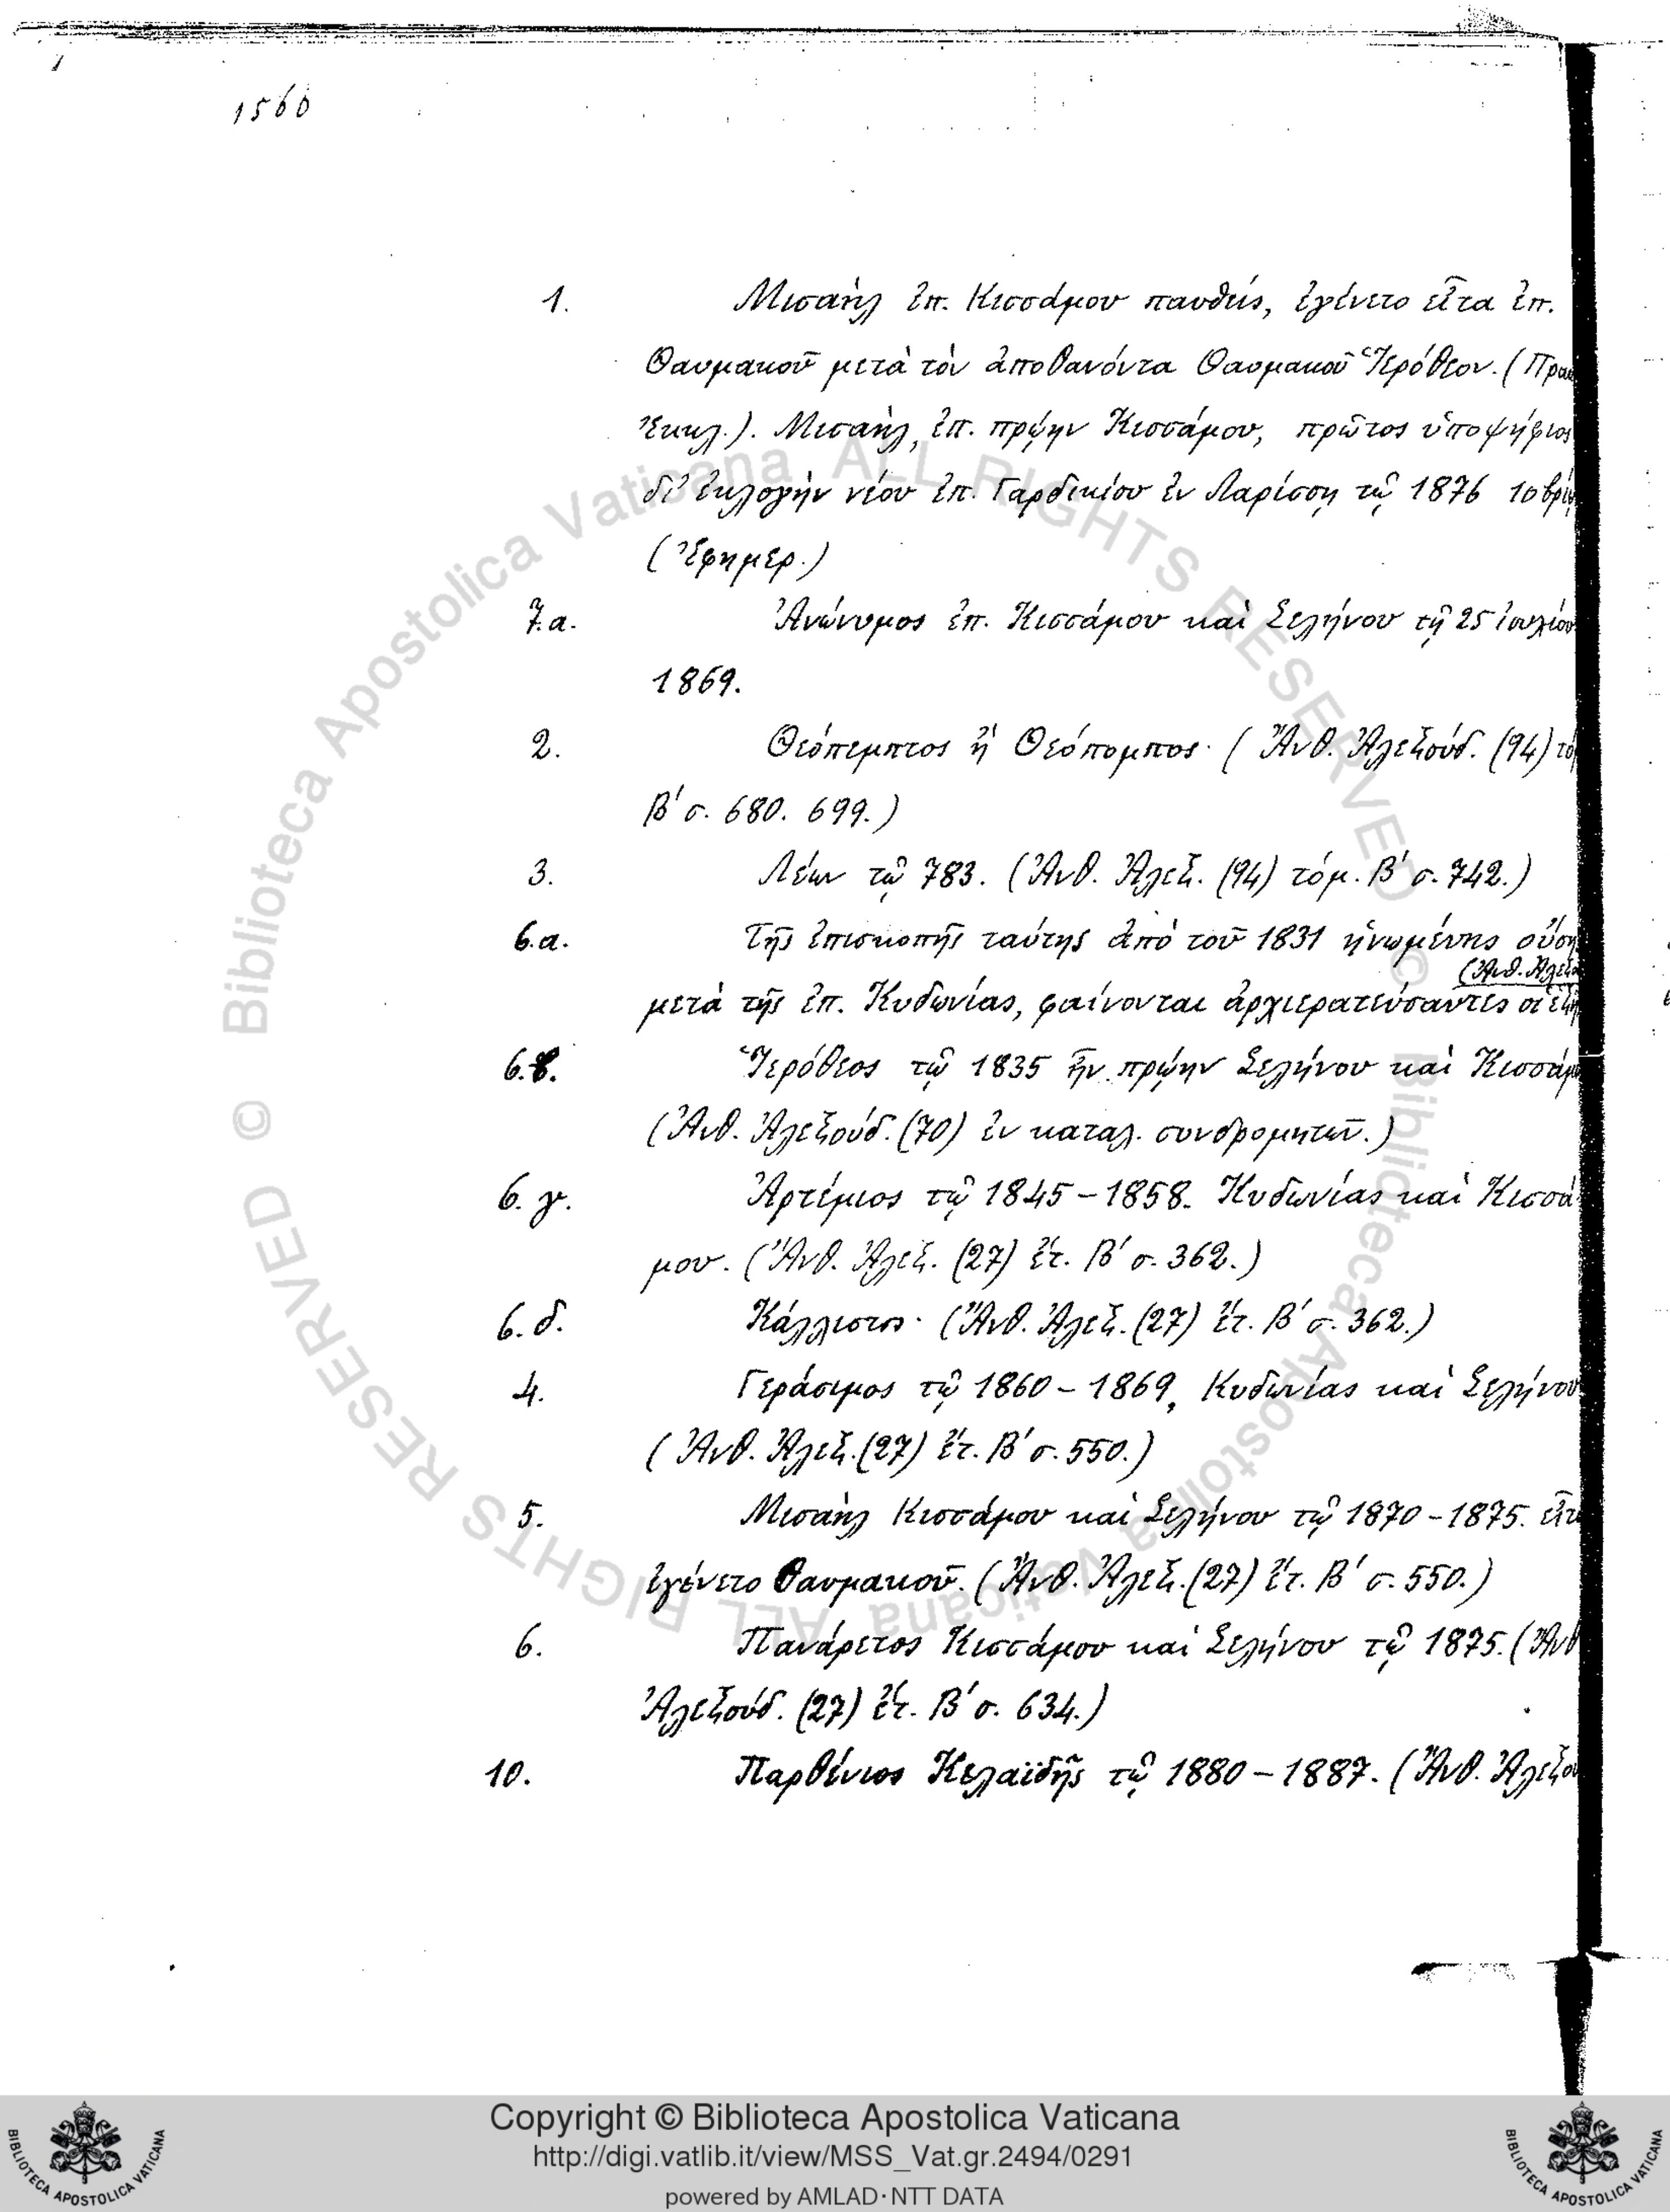 1560
1. Μισαὴλ ἐπ. Κισσάμου παυθείς, ἐγένετο εἶτα ἐπ.
Θαυμακοῦ μετὰ τὸν ἀποθανόντα Θαυμακοῦ Ἱερόθεον. (Πρακ
Ἐκκλ.). Μισαὴλ, ἐπ. πρῴην Κισσάμου, πρῶτος ὑποψήφιος
δι' ἐκλογὴν νέου ἐπ. Γαρδικίου ἐν Λαρίσσῃ τῷ 1876 10βρίῳ
(Ἐφημερ.)
7.α. Ἀνώνυμος ἐπ. Κισσάμου καὶ Σελήνου τῇ 25 ἰουλίου
1869.
2. Θεόπεμπτος ἢ Θεόπομπος· (Ἄνθ. Ἀλεξούδ. (94) τό
Β' σ. 680. 699.)
3. Λέων τῷ 783. (Ἄνθ. Ἀλεξ. (94) τόμ. Β' σ. 742.)
6.α. Τῆς ἐπισκοπῆς ταύτης ἀπὸ τοῦ 1831 ἡνωμένης οὔση
(Ἄνθ. Ἀλεξ
μετὰ τῆς ἐπ. Κυδωνίας, φαίνονται ἀρχιερατεύσαντες οἱ ἑξῆ
6.β. Ἱερόθεος τῷ 1835 ἦν πρῴην Σελήνου καὶ Κισσάμ
(Ἄνθ. Ἀλεξούδ. (70) ἐν καταλ. συνδρομητῶν.)
6.γ. Ἀρτέμιος τῷ 1845-1858. Κυδωνίας καὶ Κισσά
μου. (Ἄνθ. Ἀλεξ. (27) ἔτ. Β' σ. 362.)
6.δ. Κάλλιστος· (Ἄνθ. Ἀλεξ. (27) ἔτ. Β' σ. 362.)
4. Γεράσιμος τῷ 1860-1869, Κυδωνίας καὶ Σελήνου
(Ἄνθ. Ἀλεξ. (27) ἔτ. Β' σ. 550.)
5. Μισαὴλ Κισσάμου καὶ Σελήνου τῷ 1870-1875. εἶτα
ἐγένετο Θαυμακοῦ. (Ἄνθ. Ἀλεξ. (27) ἔτ. Β' σ. 550.)
6. Πανάρετος Κισσάμου καὶ Σελήνου τῷ 1875. (Ἄνθ
Ἀλεξούδ. (27) ἔτ. Β' σ. 634.)
10. Παρθένιος Κελαϊδῆς τῷ 1880-1887. (Ἄνθ. Ἀλεξού
© Biblioteca Apostolica Vaticana ALL RIGHTS RESERVED © Biblioteca Apostolica Vaticana ALL RIGHTS RESERVED
Copyright © Biblioteca Apostolica Vaticana
http://digi.vatlib.it/view/MSS_Vat.gr.2494/0291
powered by AMLAD·NTT DATA
BIBLIOTECA APOSTOLICA VATICANA
BIBLIOTECA APOSTOLICA VATICANA